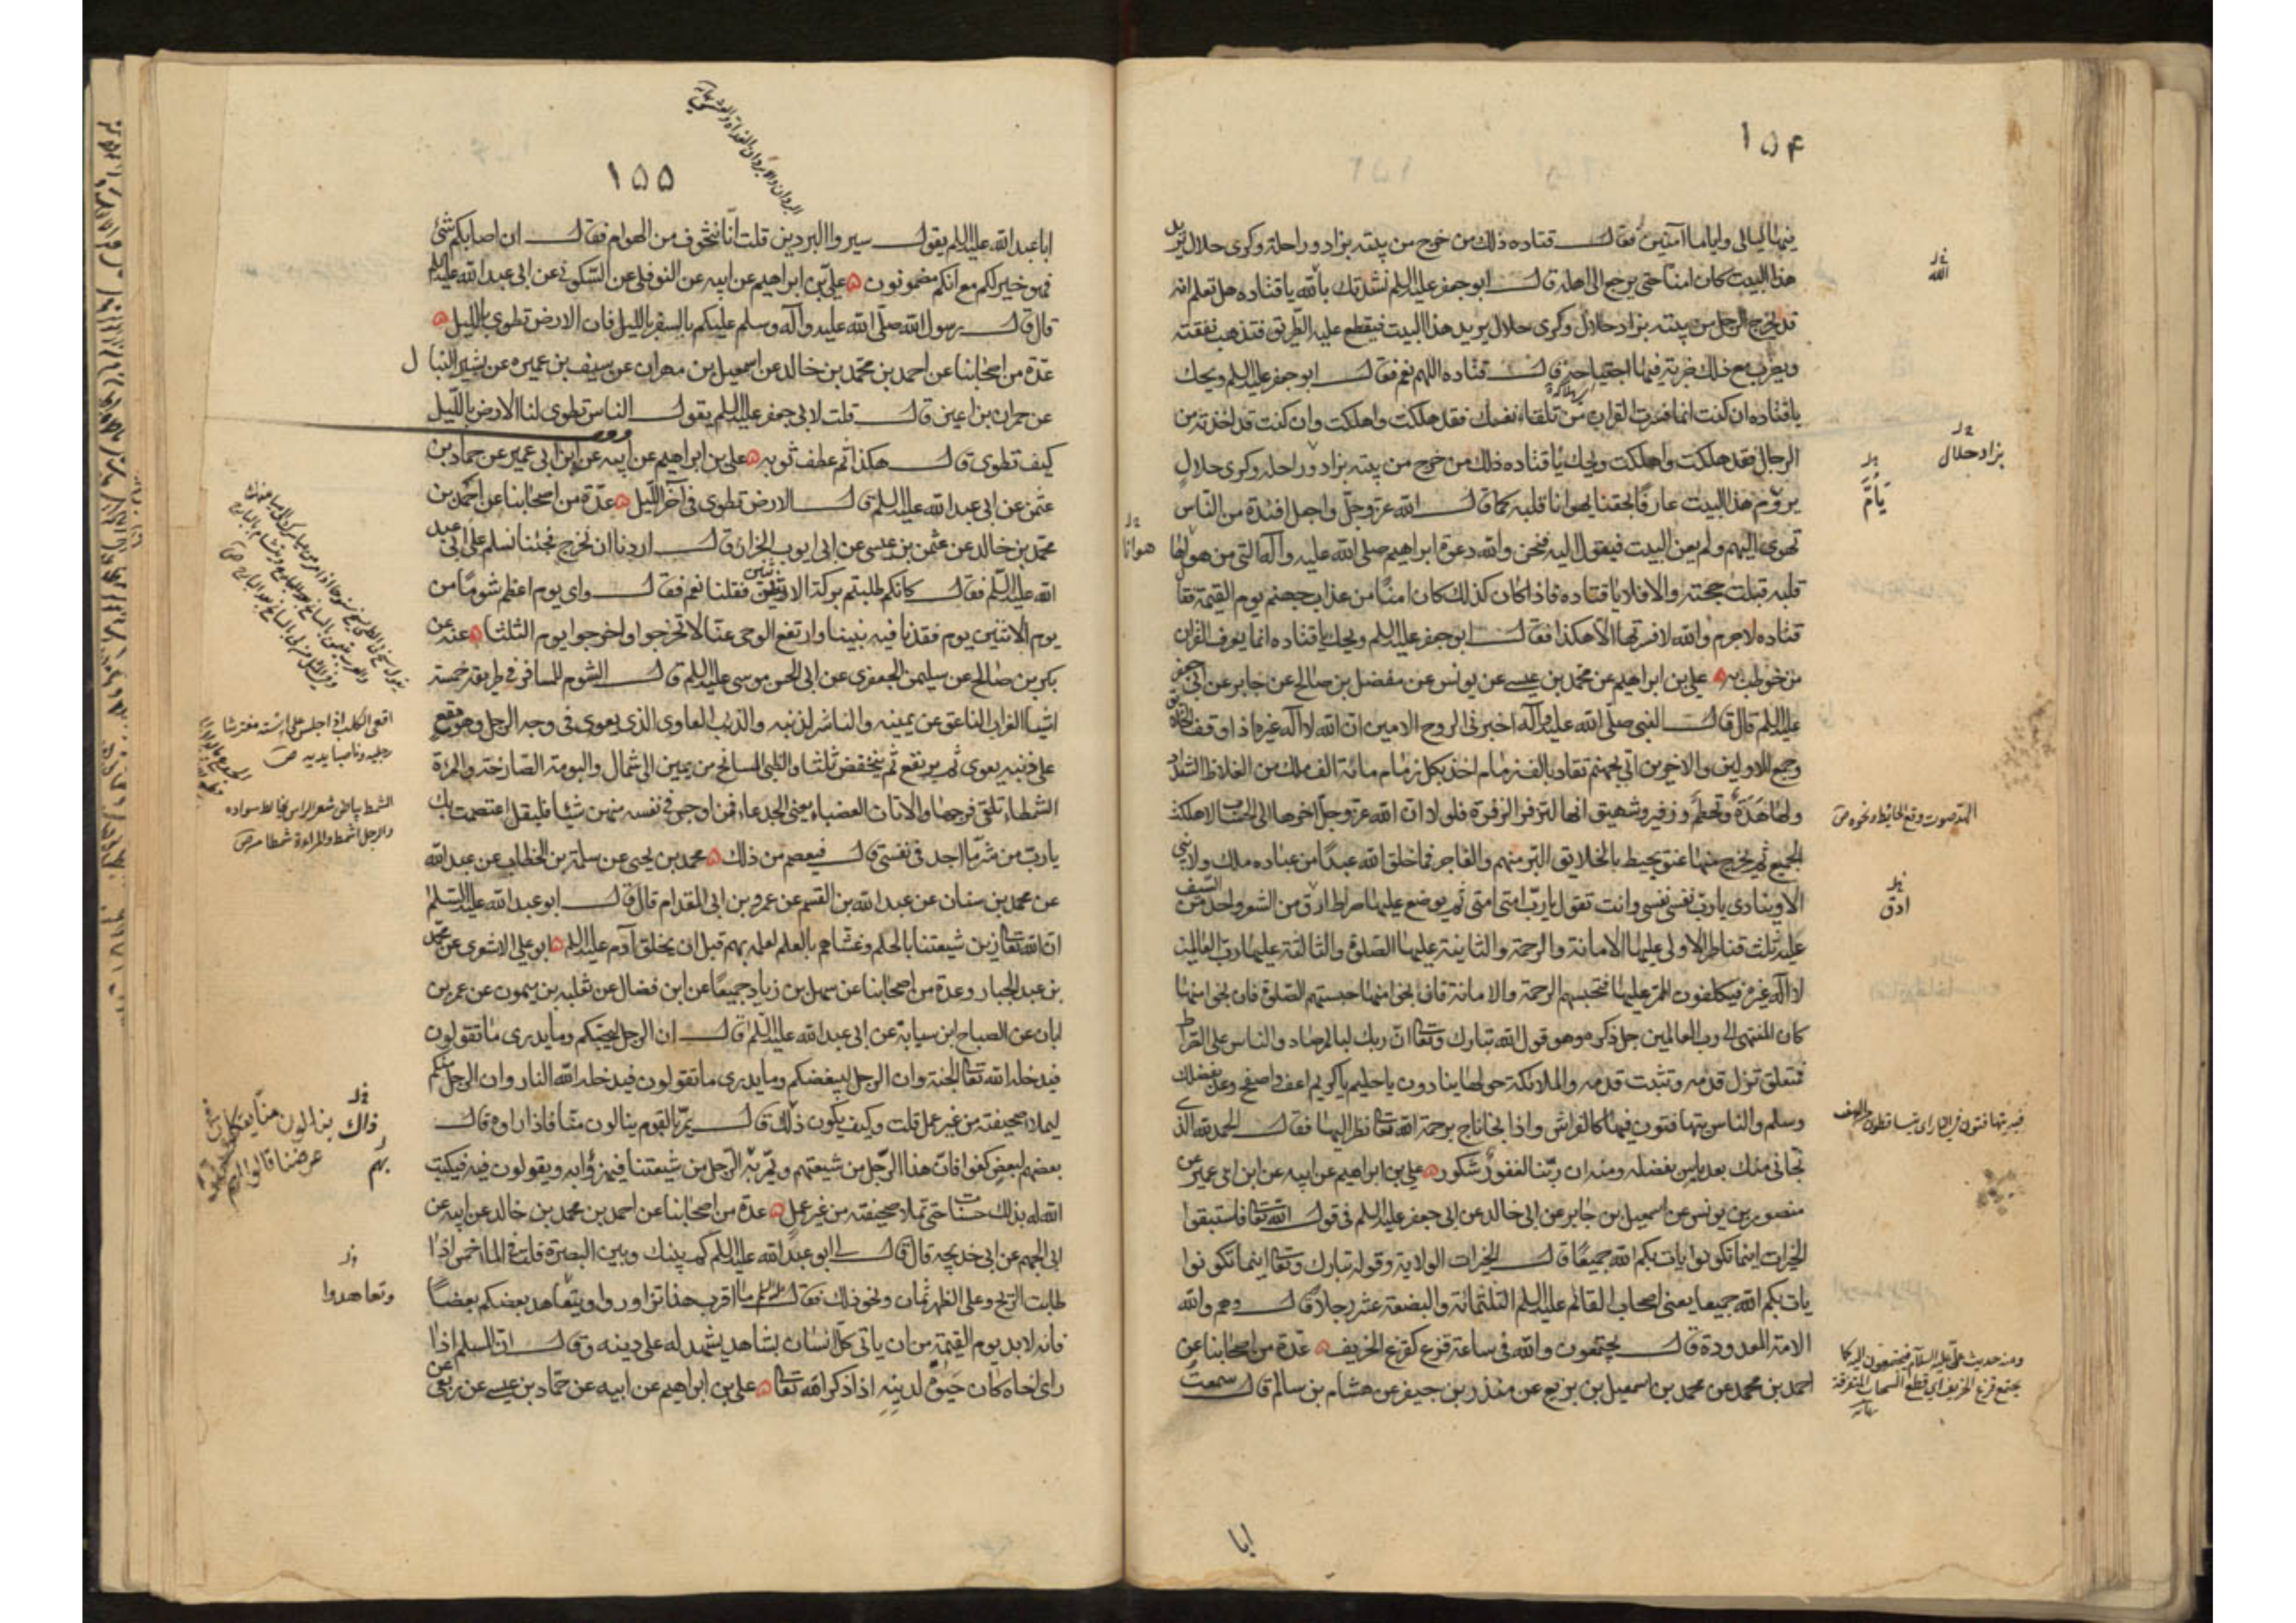 ١٥۴
فيها ليالى واياما آمنين فقال قتاده ذلك من خرج من بيته بزاد وراحلة وكرى حلال يريد
هذا البيت كان امنا حتى يرجع الى اهله قال ابو جعفر عليه السلم نشدتك بالله يا قتاده هل تعلم انه
قد يخرج الرجل من بيته بزاد حلال وكرى حلال يريد هذا البيت فيقطع عليه الطريق فتذهب نفقته
ويضرب مع ذلك ضربة فيها اجتياحه قال قتاده اللهم نعم فقال ابو جعفر عليه السلم ويحك
يا قتاده ان كنت انما فسرت القران من تلقاء نفسك فقد هلكت واهلكت وان كنت قد اخذته من
الرجال فقد هلكت واهلكت ويحك يا قتاده ذلك من خرج من بيته بزاد وراحله وكرى حلال
يروم هذا البيت عارفا بحقنا يهوانا قلبه كما قال الله عز وجل واجعل افئدة من الناس
تهوى اليهم ولم يعن البيت فيقول اليه فنحن والله دعوة ابراهيم صلى الله عليه وآله التى من هوانا
قلبه قبلت حجته والا فلا يا قتاده فاذا كان كذلك كان امنا من عذاب جهنم يوم القيمة قال
قتاده لا جرم والله لا فسرتها الا هكذا فقال ابو جعفر عليه السلم ويحك يا قتاده انما يعرف القران
من خوطب به ۵ على بن ابراهيم عن محمد بن عيسى عن يونس عن مفضل بن صالح عن جابر عن ابى جعفر
عليه السلم قال قال النبى صلى الله عليه وآله اخبرنى الروح الامين ان الله لا اله غيره اذا وقف الخلائق
وجمع الاولين والاخرين اتى بجهنم تقاد بالف زمام اخذ بكل زمام مائة الف ملك من الغلاظ الشداد
ولها هدة وتحطم وزفير وشهيق انها لتزفر الزفرة فلولا ان الله عز وجل اخرها الى الحساب لاهلكت
الجميع ثم يخرج منها عنق يحيط بالخلائق البر منهم والفاجر فما خلق الله عبدا من عباده ملك ولا نبى
الا وينادى يا رب نفسى نفسى وانت تقول يا رب امتى امتى ثم يوضع عليها صراط ارق من الشعر واحد من السيف
عليه ثلث قناطر الاولى عليها الامانة والرحمة والثانية عليها الصلوة والثالثة عليها رب العالمين
لا اله غيره فيكلفون الممر عليها فتحبسهم الرحمة والامانة فان نجوا منها حبستهم الصلوة فان نجوا منها
كان المنتهى الى رب العالمين جل ذكره وهو قول الله تبارك وتعالى ان ربك لبالمرصاد والناس على الصراط
فتعلق تزل قدمه وتثبت قدمه والملائكة حولها ينادون يا حليم يا كريم اعف واصفح وعد بفضلك
وسلم والناس يتهافتون فيها كالفراش واذا نجا ناج برحمة الله تعالى نظر اليها فقال الحمد لله الذى
نجانى منك بعد ياس بفضله ومنه ان ربنا لغفور شكور ۵ على بن ابراهيم عن ابيه عن ابن ابى عمير عن
منصور بن يونس عن اسمعيل بن جابر عن ابى خالد عن ابى جعفر عليه السلم فى قول الله تعالى فاستبقوا
الخيرات اينما تكونوا يات بكم الله جميعا قال الخيرات الولاية وقوله تبارك وتعالى اينما تكونوا
يات بكم الله جميعا يعنى اصحاب القائم عليه السلم الثلثمائة والبضعة عشر رجلا قال وهم والله
الامة المعدودة قال يجتمعون والله فى ساعة قزع كقزع الخريف ۵ عدة من اصحابنا عن
احمد بن محمد عن محمد بن اسمعيل بن بزيع عن منذر بن جيفر عن هشام بن سالم قال سمعت
الله
بزاد حلال
يأم
هوانا
الهدة صوت وقع الحايط ونحوه ص
ادق
ومنه حديث على عليه السلام فيجتمعون اليه كما
يجتمع قزع الخريف اى قطع السحاب المتفرقة
نهاية
ابا
١٥٥
البردان والابردان الغداة والعشى نهاية
ابا عبد الله عليه السلم يقول سيروا البردين قلت انا نتخوف من الهوام فقال ان اصابكم شئ
فهو خير لكم مع انكم مضمونون ۵ على بن ابراهيم عن ابيه عن النوفلى عن السكونى عن ابى عبد الله عليه السلم
قال قال رسول الله صلى الله عليه وآله وسلم عليكم بالسفر بالليل فان الارض تطوى بالليل ۵
عدة من اصحابنا عن احمد بن محمد بن خالد عن اسمعيل بن مهران عن سيف بن عميره عن بشير النبال
عن حمران بن اعين قال قلت لابى جعفر عليه السلم يقول الناس تطوى لنا الارض بالليل
كيف تطوى قال هكذا ثم عطف ثوبه ۵ على بن ابراهيم عن ابيه عن ابن ابى عمير عن حماد بن
عثمن عن ابى عبد الله عليه السلم قال الارض تطوى فى آخر الليل ۵ عدة من اصحابنا عن احمد بن
محمد بن خالد عن عثمن بن عيسى عن ابى ايوب الخزاز قال اردنا ان نخرج فجئنا نسلم على ابى عبد
الله عليه السلم فقال كانكم طلبتم بركة الاثنين فقلنا نعم فقال واى يوم اعظم شوما من
يوم الاثنين يوم فقدنا فيه نبينا وارتفع الوحى عنا لا تخرجوا واخرجوا يوم الثلثا ۵ عنه عن
بكر بن صالح عن سليمن الجعفرى عن ابى الحسن موسى عليه السلم قال الشوم للمسافر فى طريقه خمسة
اشيا الغراب الناعق عن يمينه والناشر لذنبه والذئب العاوى الذى يعوى فى وجه الرجل وهو مقع
على ذنبه يعوى ثم يرتفع ثم ينخفض ثلثا والظبى السانح من يمين الى شمال والبومة الصارخة والمرأة
الشمطاء تلقى فرجها والاتان العضباء يعنى الجدعاء فمن اوجس فى نفسه منهن شيئا فليقل اعتصمت بك
يا رب من شر ما اجد فى نفسى قال فيعصم من ذلك ۵ محمد بن يحيى عن سلمة بن الخطاب عن عبد الله
عن محمد بن سنان عن عبد الله بن القسم عن عمرو بن ابى المقدام قال قال ابو عبد الله عليه السلم
ان الله تعالى زين شيعتنا بالحلم وغشاهم بالعلم لعلمه بهم قبل ان يخلق آدم عليه السلم ۵ ابو على الاشعرى عن محمد
بن عبد الجبار وعدة من اصحابنا عن سهل بن زياد جميعا عن ابن فضال عن ثعلبه بن ميمون عن عمر بن
ابان عن الصباح ابن سيابة عن ابى عبد الله عليه السلم قال ان الرجل ليحبكم وما يدرى ما تقولون
فيدخله الله تعالى الجنة وان الرجل ليبغضكم وما يدرى ما تقولون فيدخله الله النار وان الرجل منكم
ليملا صحيفته من غير عمل قلت وكيف يكون ذلك قال يمر بالقوم ينالون منا فاذا راوه قال
بعضهم لبعض كفوا فان هذا الرجل من شيعتهم ويمر به الرجل من شيعتنا فيهمزونه ويقولون فيه فيكتب
الله له بذلك حسنات حتى تملا صحيفته من غير عمل ۵ عدة من اصحابنا عن احمد بن محمد بن خالد عن ابيه عن
ابى الجهم عن ابى خديجه قال قال لى ابو عبد الله عليه السلم كم بينك وبين البصرة قلت فى الما خمس اذا
طابت الريح وعلى الظهر ثمان ونحو ذلك فقال ما اقرب هذا تزاوروا ويتعاهد بعضكم بعضا
فانه لا بد يوم القيمة من ان ياتى كل انسان بشاهد يشهد له على دينه وقال ان المسلم اذا
راى اخاه كان حيوة لدينه اذا ذكر الله تعالى ۵ على بن ابراهيم عن ابيه عن حماد بن عيسى عن ربعى عن
اقعى الكلب اذا جلس على استه مفترشا
رجليه وناصبا يديه ص
الشمط بياض شعر الراس يخالط سواده
والرجل اشمط والمراءة شمطا ص
ذاك
بهم
وتعاهدوا